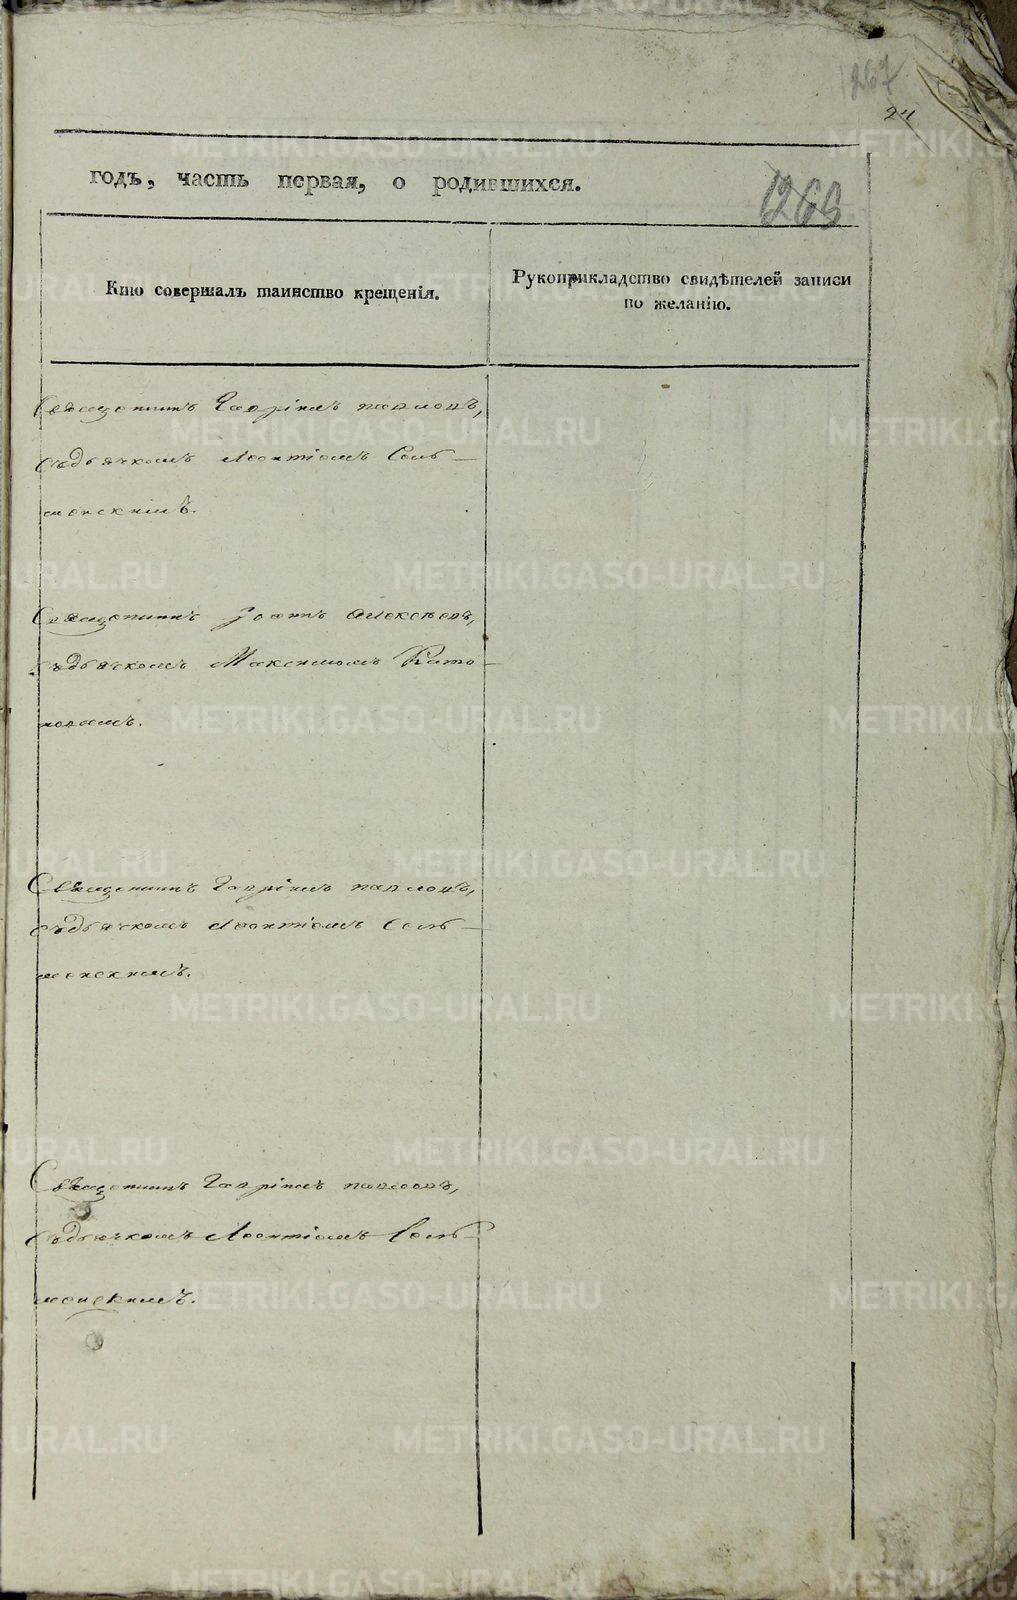 1267
24
годъ, часть первая, о родившихся.
1266
Кто совершалъ таинство крещенія.
Рукоприкладство свидѣтелей записи
по желанію.
Священникъ Гавріилъ Павловъ,
съ дьячкомъ Леонтіемъ Соль-
монскимъ.
Священникъ Іоаннъ Алексѣевъ,
съ дьячкомъ Максимомъ
Священникъ Гавріилъ Павловъ,
съ дьячкомъ Леонтіемъ Соль-
монскимъ.
Священникъ Гавріилъ Павловъ,
съ дьячкомъ Леонтіемъ Соль-
монскимъ.
METRIKI.GASO-URAL.RU